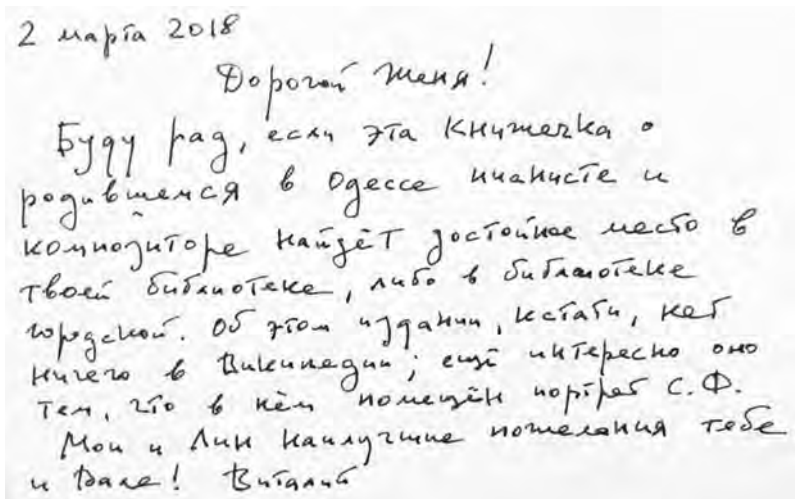 2 марта 2018
Дорогой Женя!
Буду рад, если эта книжечка о
родившемся в Одессе пианисте и
композиторе найдёт достойное место в
твоей библиотеке, либо в библиотеке
городской. Об этом издании, кстати, нет
ничего в Википедии; ещё интересно оно
тем, что в нём помещён портрет С. Ф.
Мои и Лин наилучшие пожелания тебе
и Вале! Виталий